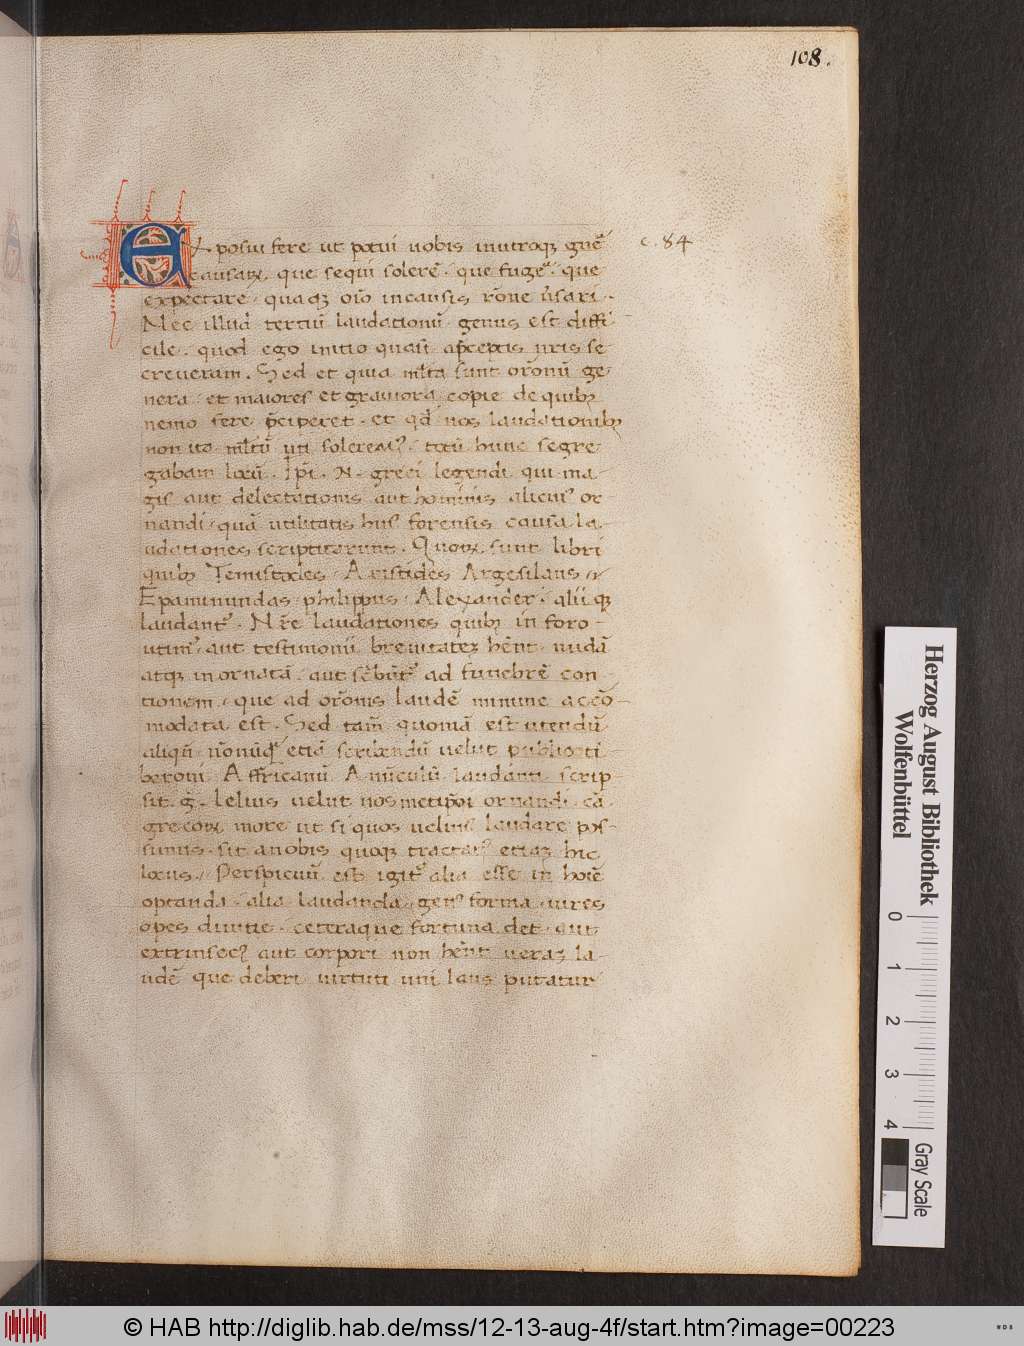 108.
Exposui fere ut potui uobis in utroq₃ gn̄e c. 84
causaꝝ, que sequi solerē · que fugeř · que
expectare, quaq₃ oīo in causis rōne ūsari.
Nec illud tertiū laudationū genus est diffi
cile. quod ego initio quasi a p̄ceptis nr̄is se
creueram. Sed et quia ml̄ta sunt orōnū ge
nera et maiores et grauiora copie de quib₃
nemo fere p̄ciperet. et qd̄ nos laudationib₃
non ita ml̄tū uti soleremꝰ. totū hunc segre
gabam locū. Ip̄i. N. greci legendi qui ma
gis aut delectationis aut hominis alicuiꝰ or
nandi, quā utilitatis huiꝰ forensis causa la
udationes scriptitarunt. Quoꝝ sunt libri
quib₃ Temistocles, Aristides Argesilaus
Epaminundas philippus Alexander. alii q₃
laudant᷑. Nr̄e laudationes quib₃ in foro
utimꝰ, aut testimonii breuitatē hn̄t nudā
atq₃ inornatā, aut sc̄būt᷑ ad funebrē con
tionem, que ad orōnis laudē minime accō-
modata est. Sed tam̄ quoniā est utendū
aliqn̄ nōnūq̄ etiā scribendū uelut publio ti
beroni Affricanū Aūnculū laudanti scrip-
sit. g. Lelius uelut nosmetip̄i ornandi cā
grecoꝝ more ut si quos uelimꝰ laudare pos-
simus, sit a nobis quoq₃ tractatꝰ etiam hic
locus. Perspicuū est igit᷑ alia esse in hoīe
optanda, alia laudanda. genꝰ forma uires
opes diuitie, ceteraque fortuna det aut
extrinsecꝰ aut corpori non hn̄t ueraʒ la-
udē que deberi uirtuti uni laus putatur
Herzog August Bibliothek
Wolfenbüttel
0 1 2 3 4
Gray Scale
© HAB http://diglib.hab.de/mss/12-13-aug-4f/start.htm?image=00223